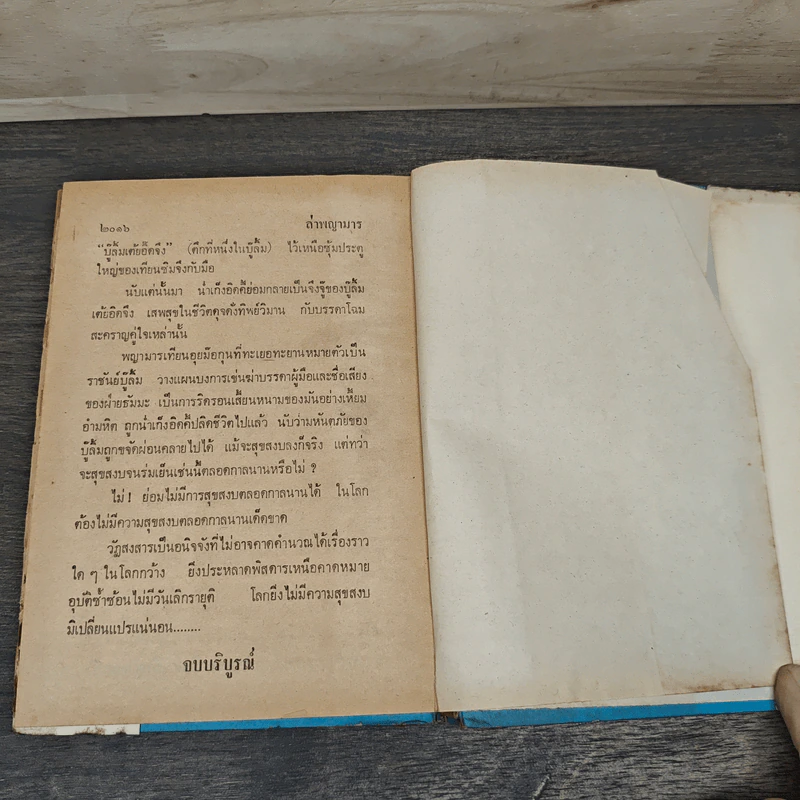 ๒๐๑๖ ล่าพญามาร
"บู๊ลิ้มเต้ยอิ๊ดจึง" (ตึกที่หนึ่งในบู๊ลิ้ม) ไว้เหนือซุ้มประตู
ใหญ่ของเทียนซิมจึงกับมือ
นับแต่นั้นมา น่ำเก็งอิดคี้ย่อมกลายเป็นจึงจู๊ของบู๊ลิ้ม
เต้ยอิดจึง เสพสุขในชีวิตดุจดั่งทิพย์วิมาน กับบรรดาโฉม
สะคราญคู่ใจเหล่านั้น
พญามารเทียนอุยม๊อกุนที่ทะเยอทะยานหมายตัวเป็น
ราชันย์บู๊ลิ้ม วางแผนบงการเข่นฆ่าบรรดาผู้มือและชื่อเสียง
ของฝ่ายธัมมะ เป็นการริดรอนเสี้ยนหนามของมันอย่างเหี้ยม
อำมหิต ถูกน่ำเก็งอิดคี้ปลิดชีวิตไปแล้ว นับว่ามหันตภัยของ
บู๊ลิ้มถูกขจัดผ่อนคลายไปได้ แม้จะสุขสงบลงก็จริง แต่ทว่า
จะสุขสงบจนร่มเย็นเช่นนี้ตลอดกาลนานหรือไม่ ?
ไม่ ! ย่อมไม่มีการสุขสงบตลอดกาลนานได้ ในโลก
ต้องไม่มีความสุขสงบตลอดกาลนานเด็ดขาด
วัฏสงสารเป็นอนิจจังที่ไม่อาจคาดคำนวณได้เรื่องราว
ใด ๆ ในโลกกว้าง ยิ่งประหลาดพิสดารเหนือคาดหมาย
อุบัติซ้ำซ้อนไม่มีวันเลิกรายุติ โลกยิ่งไม่มีความสุขสงบ
มิเปลี่ยนแปรแน่นอน........
จบบริบูรณ์